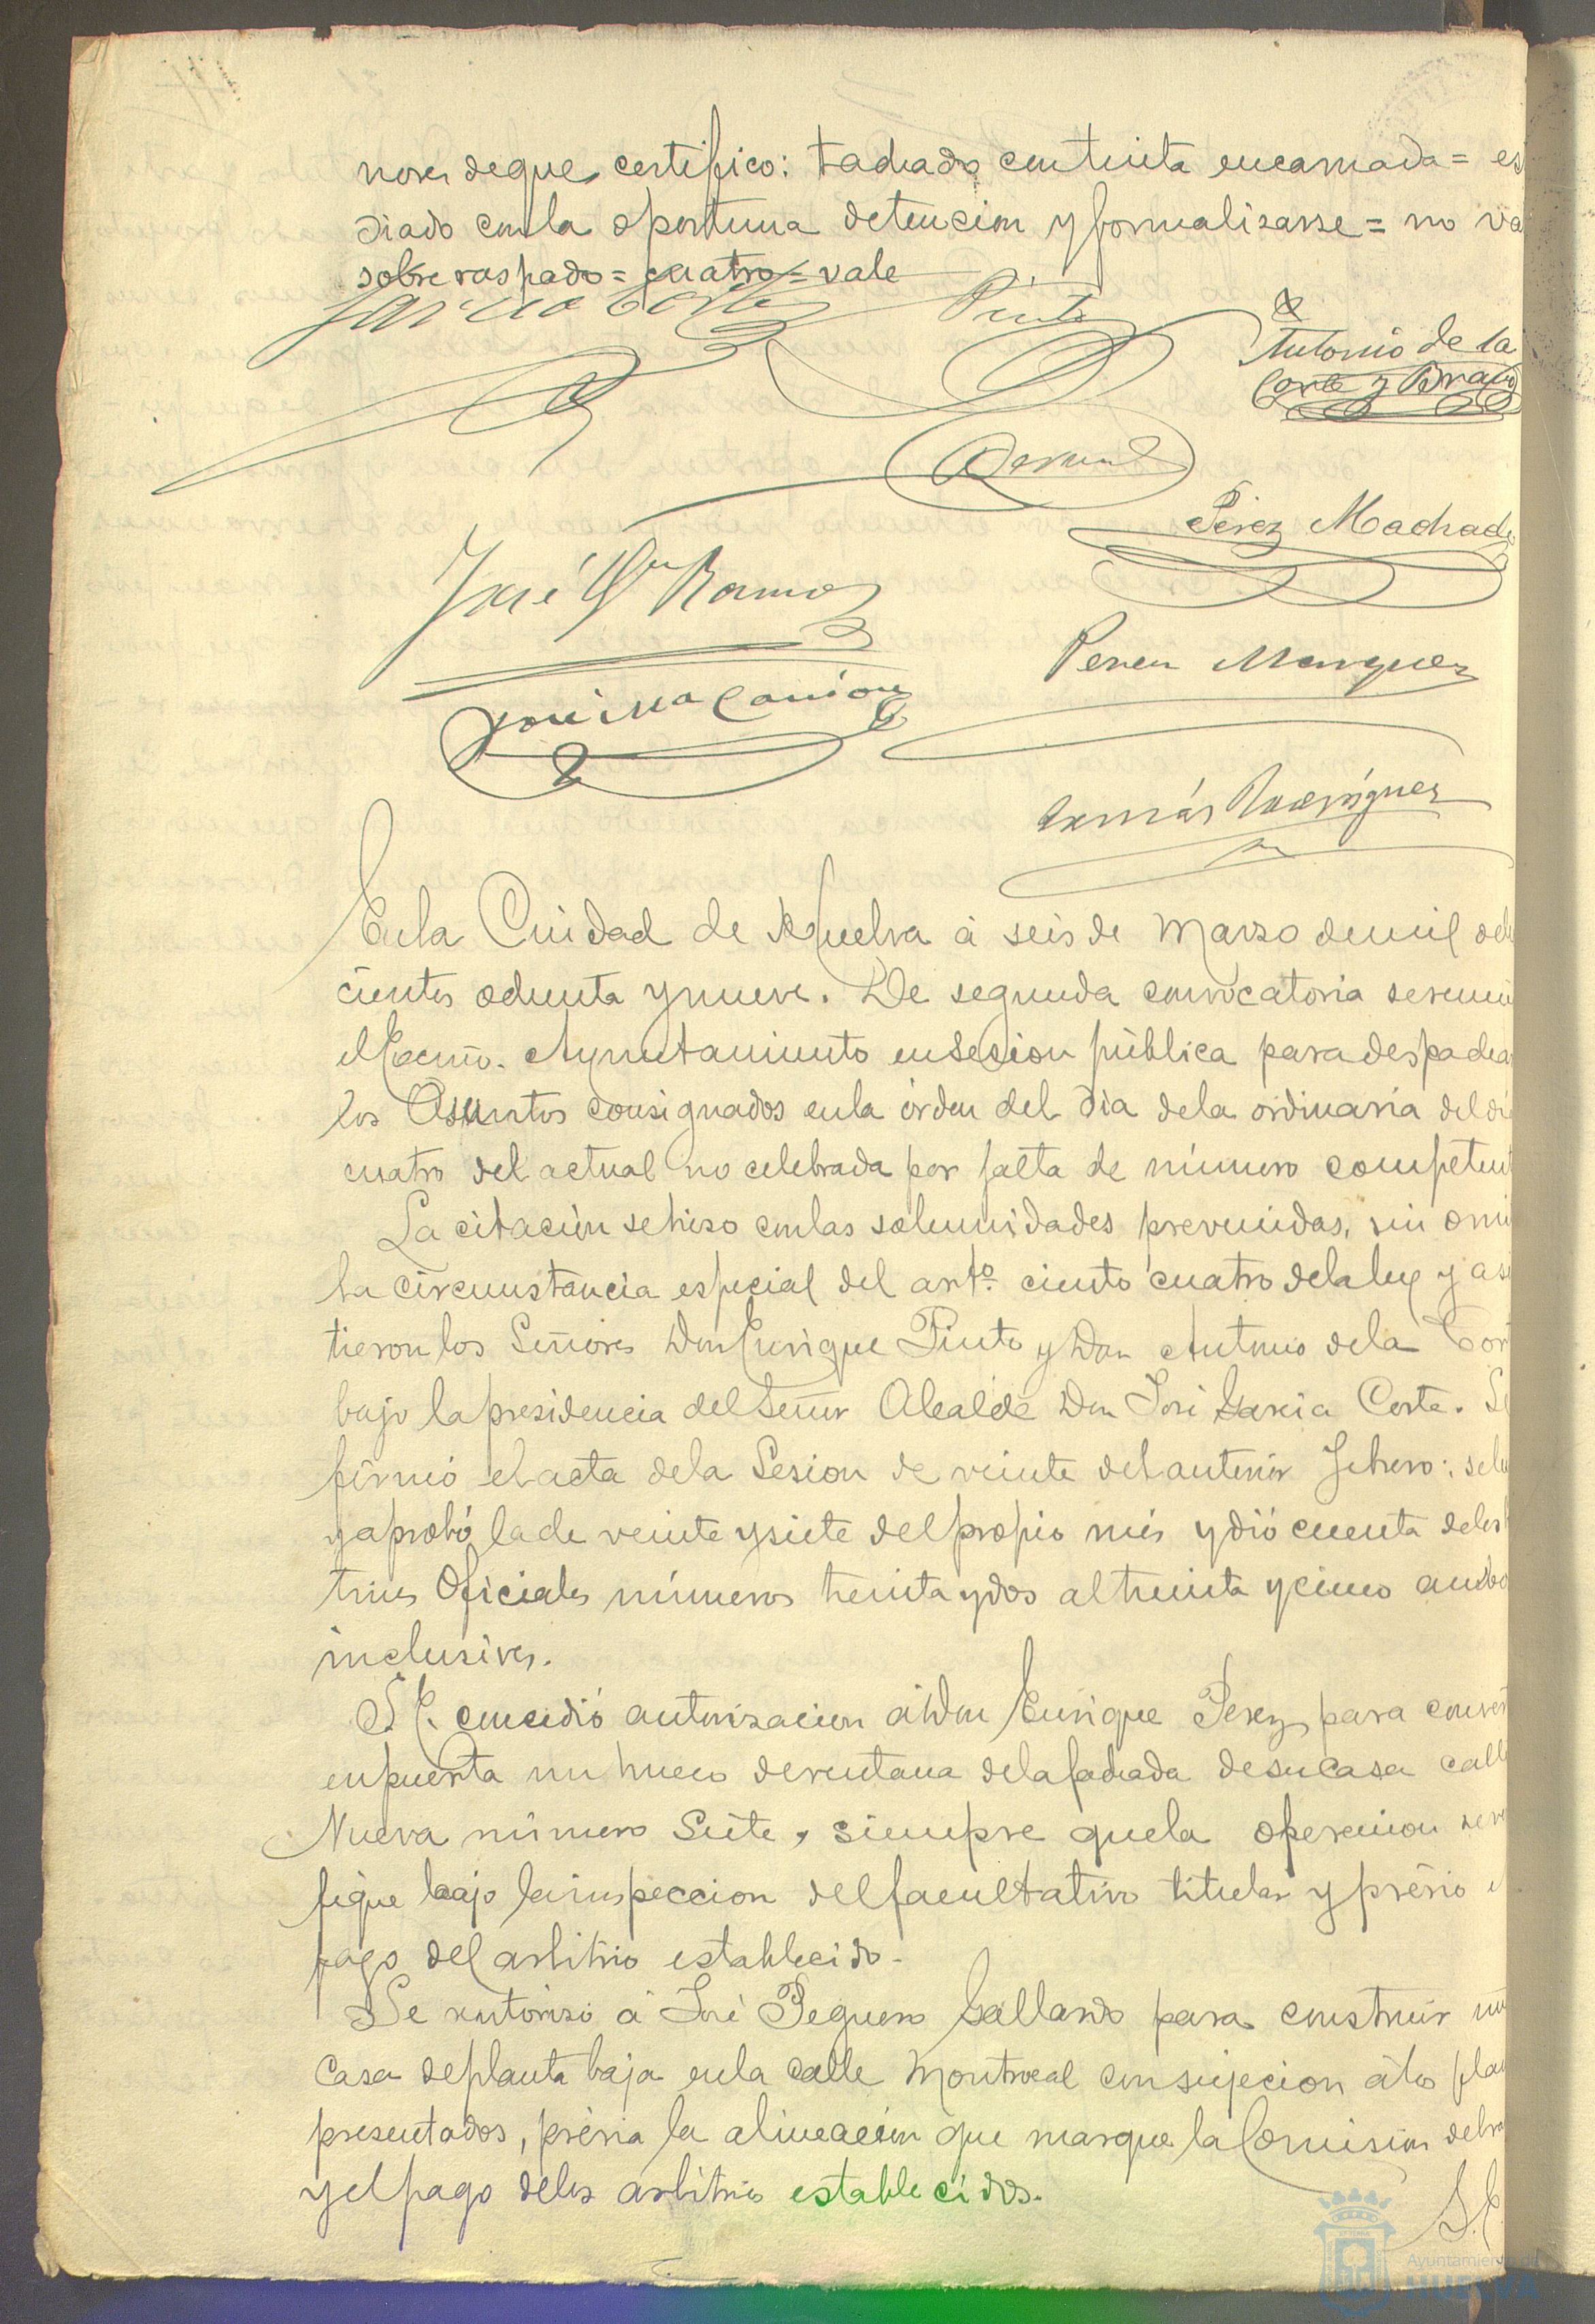 nores de que certifico: tachado con tinta encarnada = es
diado con la oportuna detencion y formalizarse = no va
sobre raspado = cuatro = vale
Garcia Corte
Pinto
Antonio de la
Corte y Bravo
Perez Machado
José Mª Ramos
Perez Marquez
José Mª Carrion
Tomás Rodriguez
En la Ciudad de Huelva á seis de Marzo de mil ocho
cientos ochenta y nueve. De segunda convocatoria se reunió
el Excmo. Ayuntamiento en Sesion pública para despachar
los Asuntos consignados en la órden del dia de la ordinaria del di
cuatro del actual no celebrada por falta de número competent
La citación se hizo con las solemnidades prevenidas, sin omi
la circunstancia especial del artº. ciento cuatro de la ley y asi
tieron los Señores Don Enrique Pinto y Don Antonio de la Cor
bajo la presidencia del Señor Alcalde Don José Garcia Corte. Se
firmó el acta de la Sesion de veinte del anterior Febrero: se le
y aprobó la de veinte y siete del propio mes y dió cuenta de los
trines Oficiales números treinta y dos al treinta y cinco ambo
inclusives.
S. E. concedió autorizacion á Don Enrique Perez para conver
en puerta un hueco de ventana de la fachada de su casa call
Nueva número Siete, siempre que la operacion se ve
fique bajo la inspeccion del facultativo titular y prévio e
pago del arbitrio establecido.
Se autorizó á José Peguero Gallardo para construir un
casa de planta baja en la calle Montrocal con sujecion á los pla
presentados, prévia la alineación que marque la Comision de
y el pago de los arbitrios establecidos.
S. E.
Ayuntamiento de
HUELVA